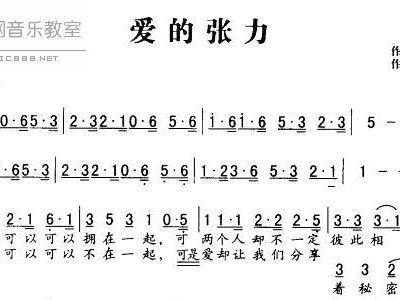 网音乐教室
IC888.NET
爱的张力
作
作
0·6 5·3 | 2·3 2·1 0·6 5·6 | i·6 i·6 5·3 2·3 | 5 -
6 5·3 | 2·3 2·1 0·6 5·6 | 2·1 2·3 5·3 2·1 | 1 -
2·1 6·1 | 3 5 3 1 0·5 | 2·1 2·2 0·5 2·3 | 3 3 1
可以可以拥在一起,可两个人却不一定彼此相
可以可以不在一起,可是爱却让我们分享
3 3 2
着秘密